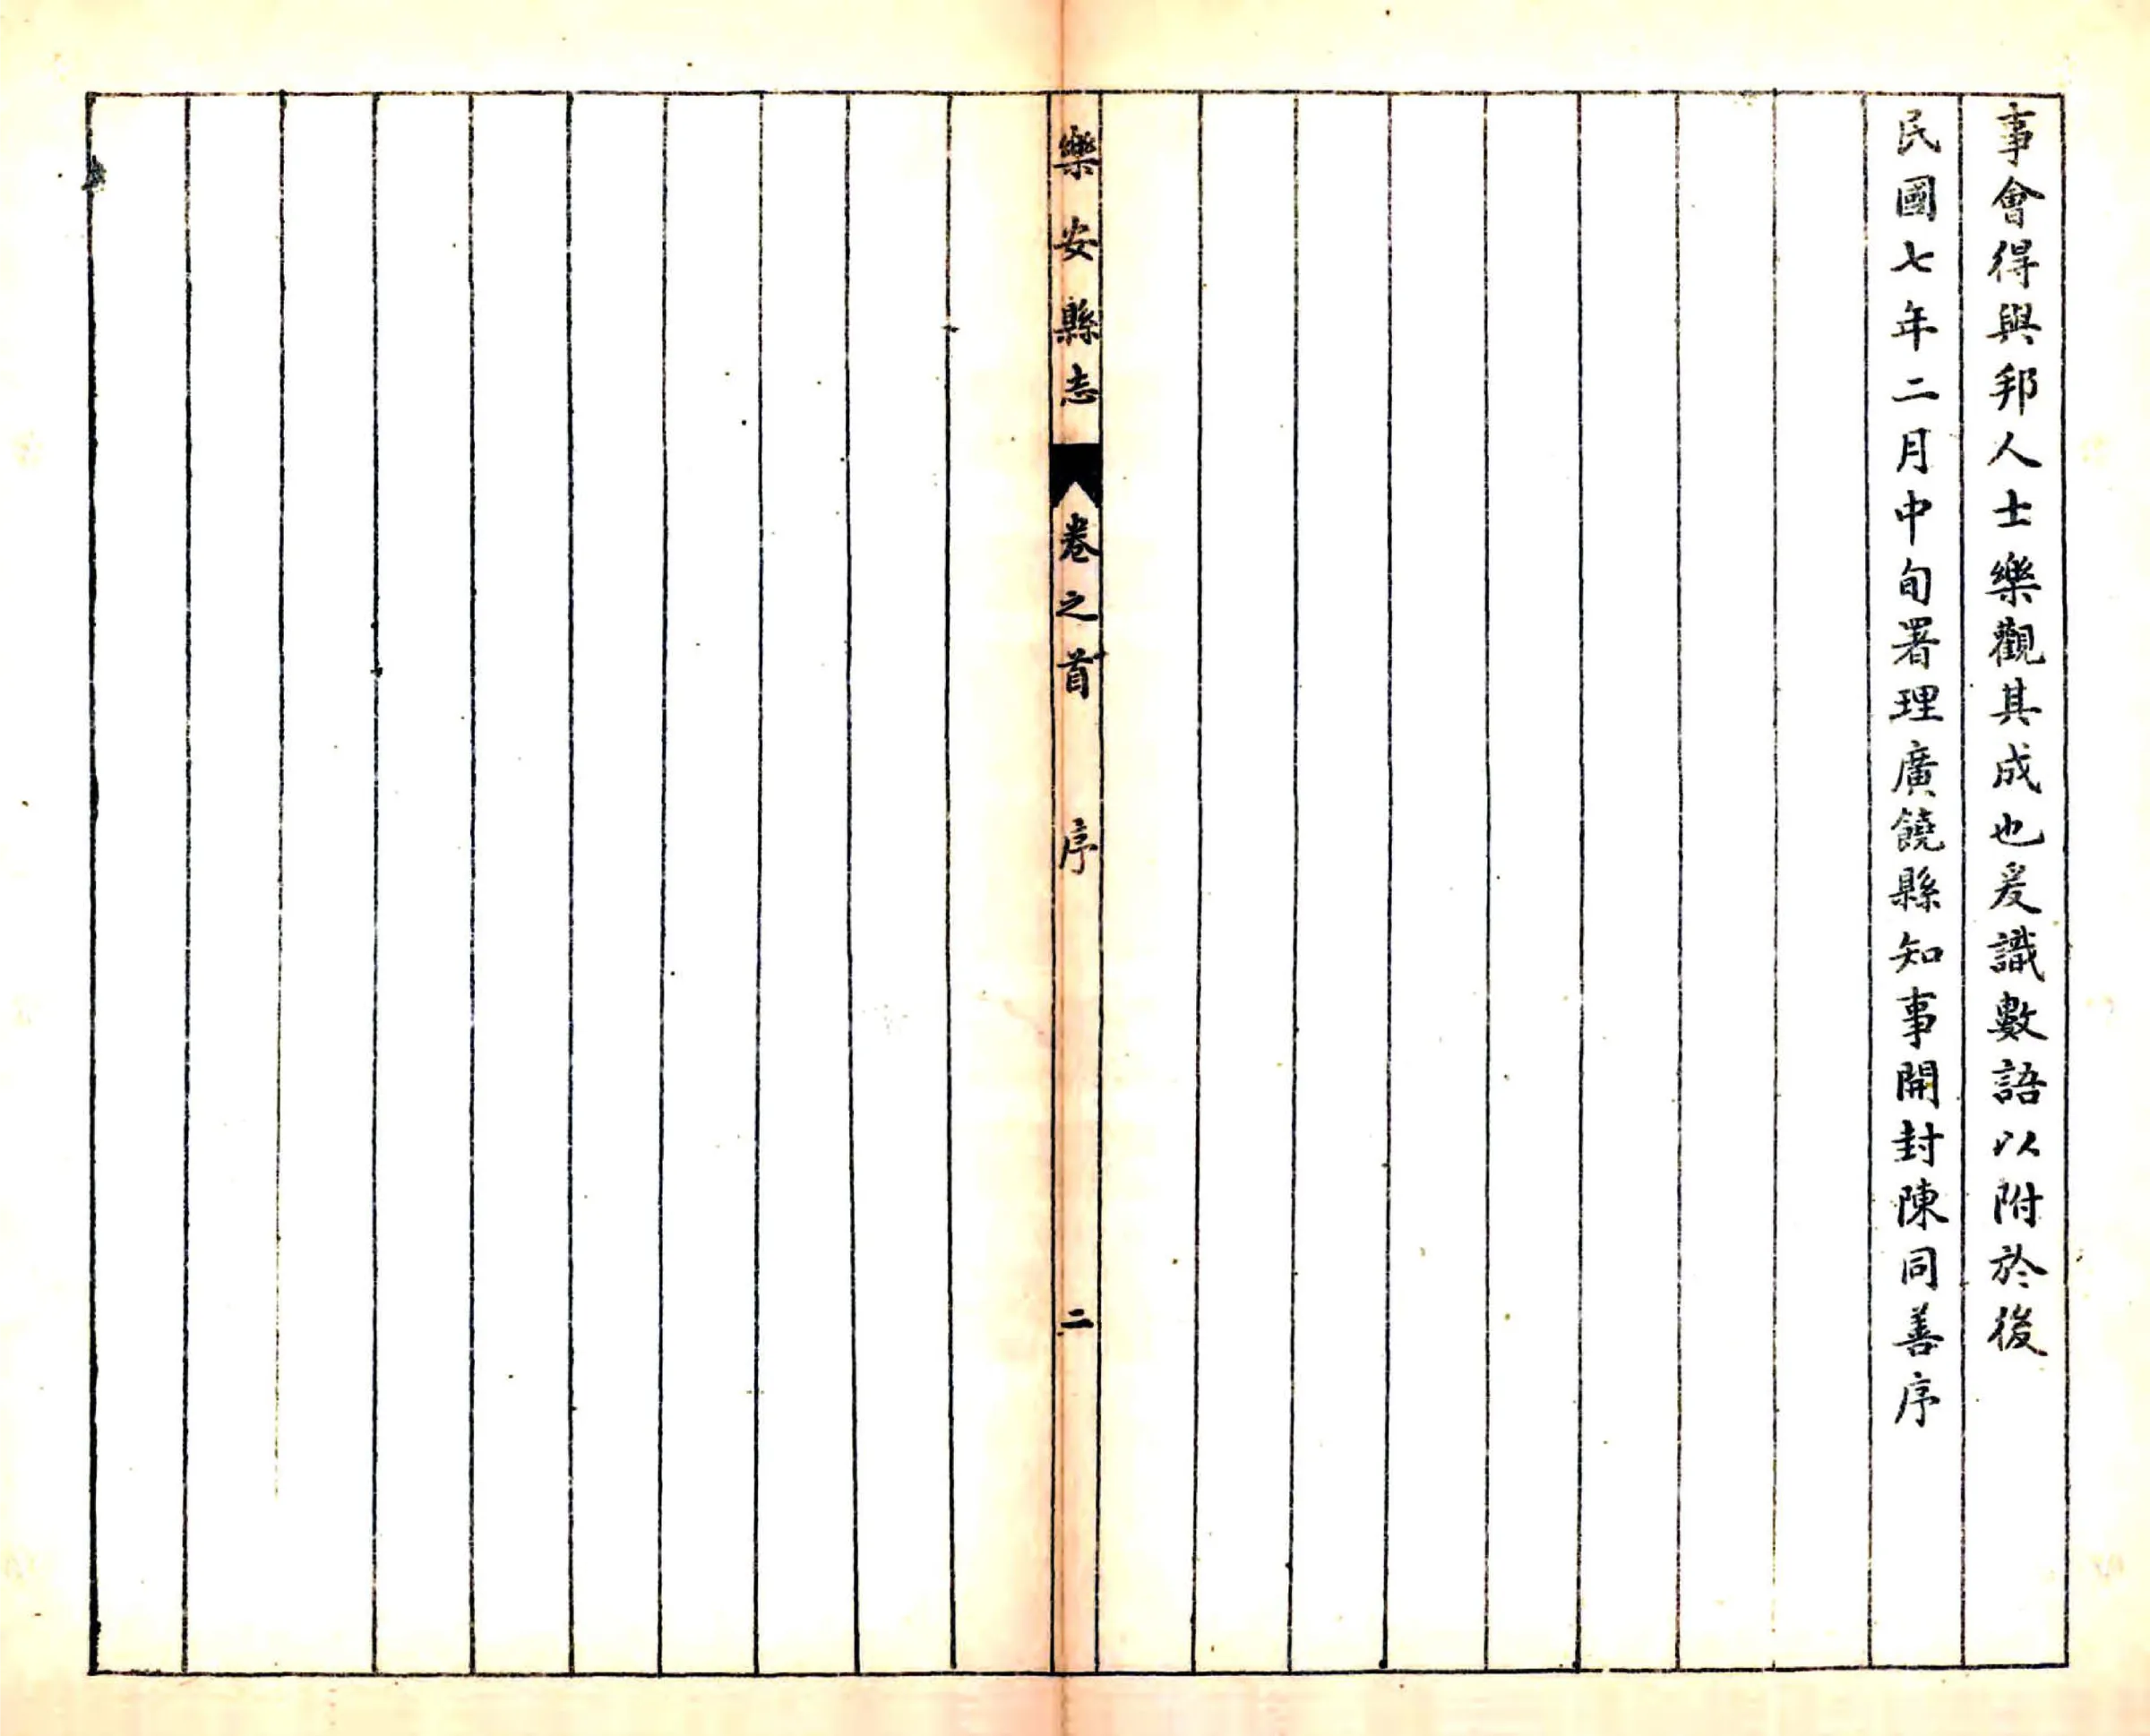 事會得與邦人士樂觀其成也爰識數語以附於後
民國七年二月中旬署理廣饒縣知事開封陳同善序
樂安縣志 卷之首 序 二